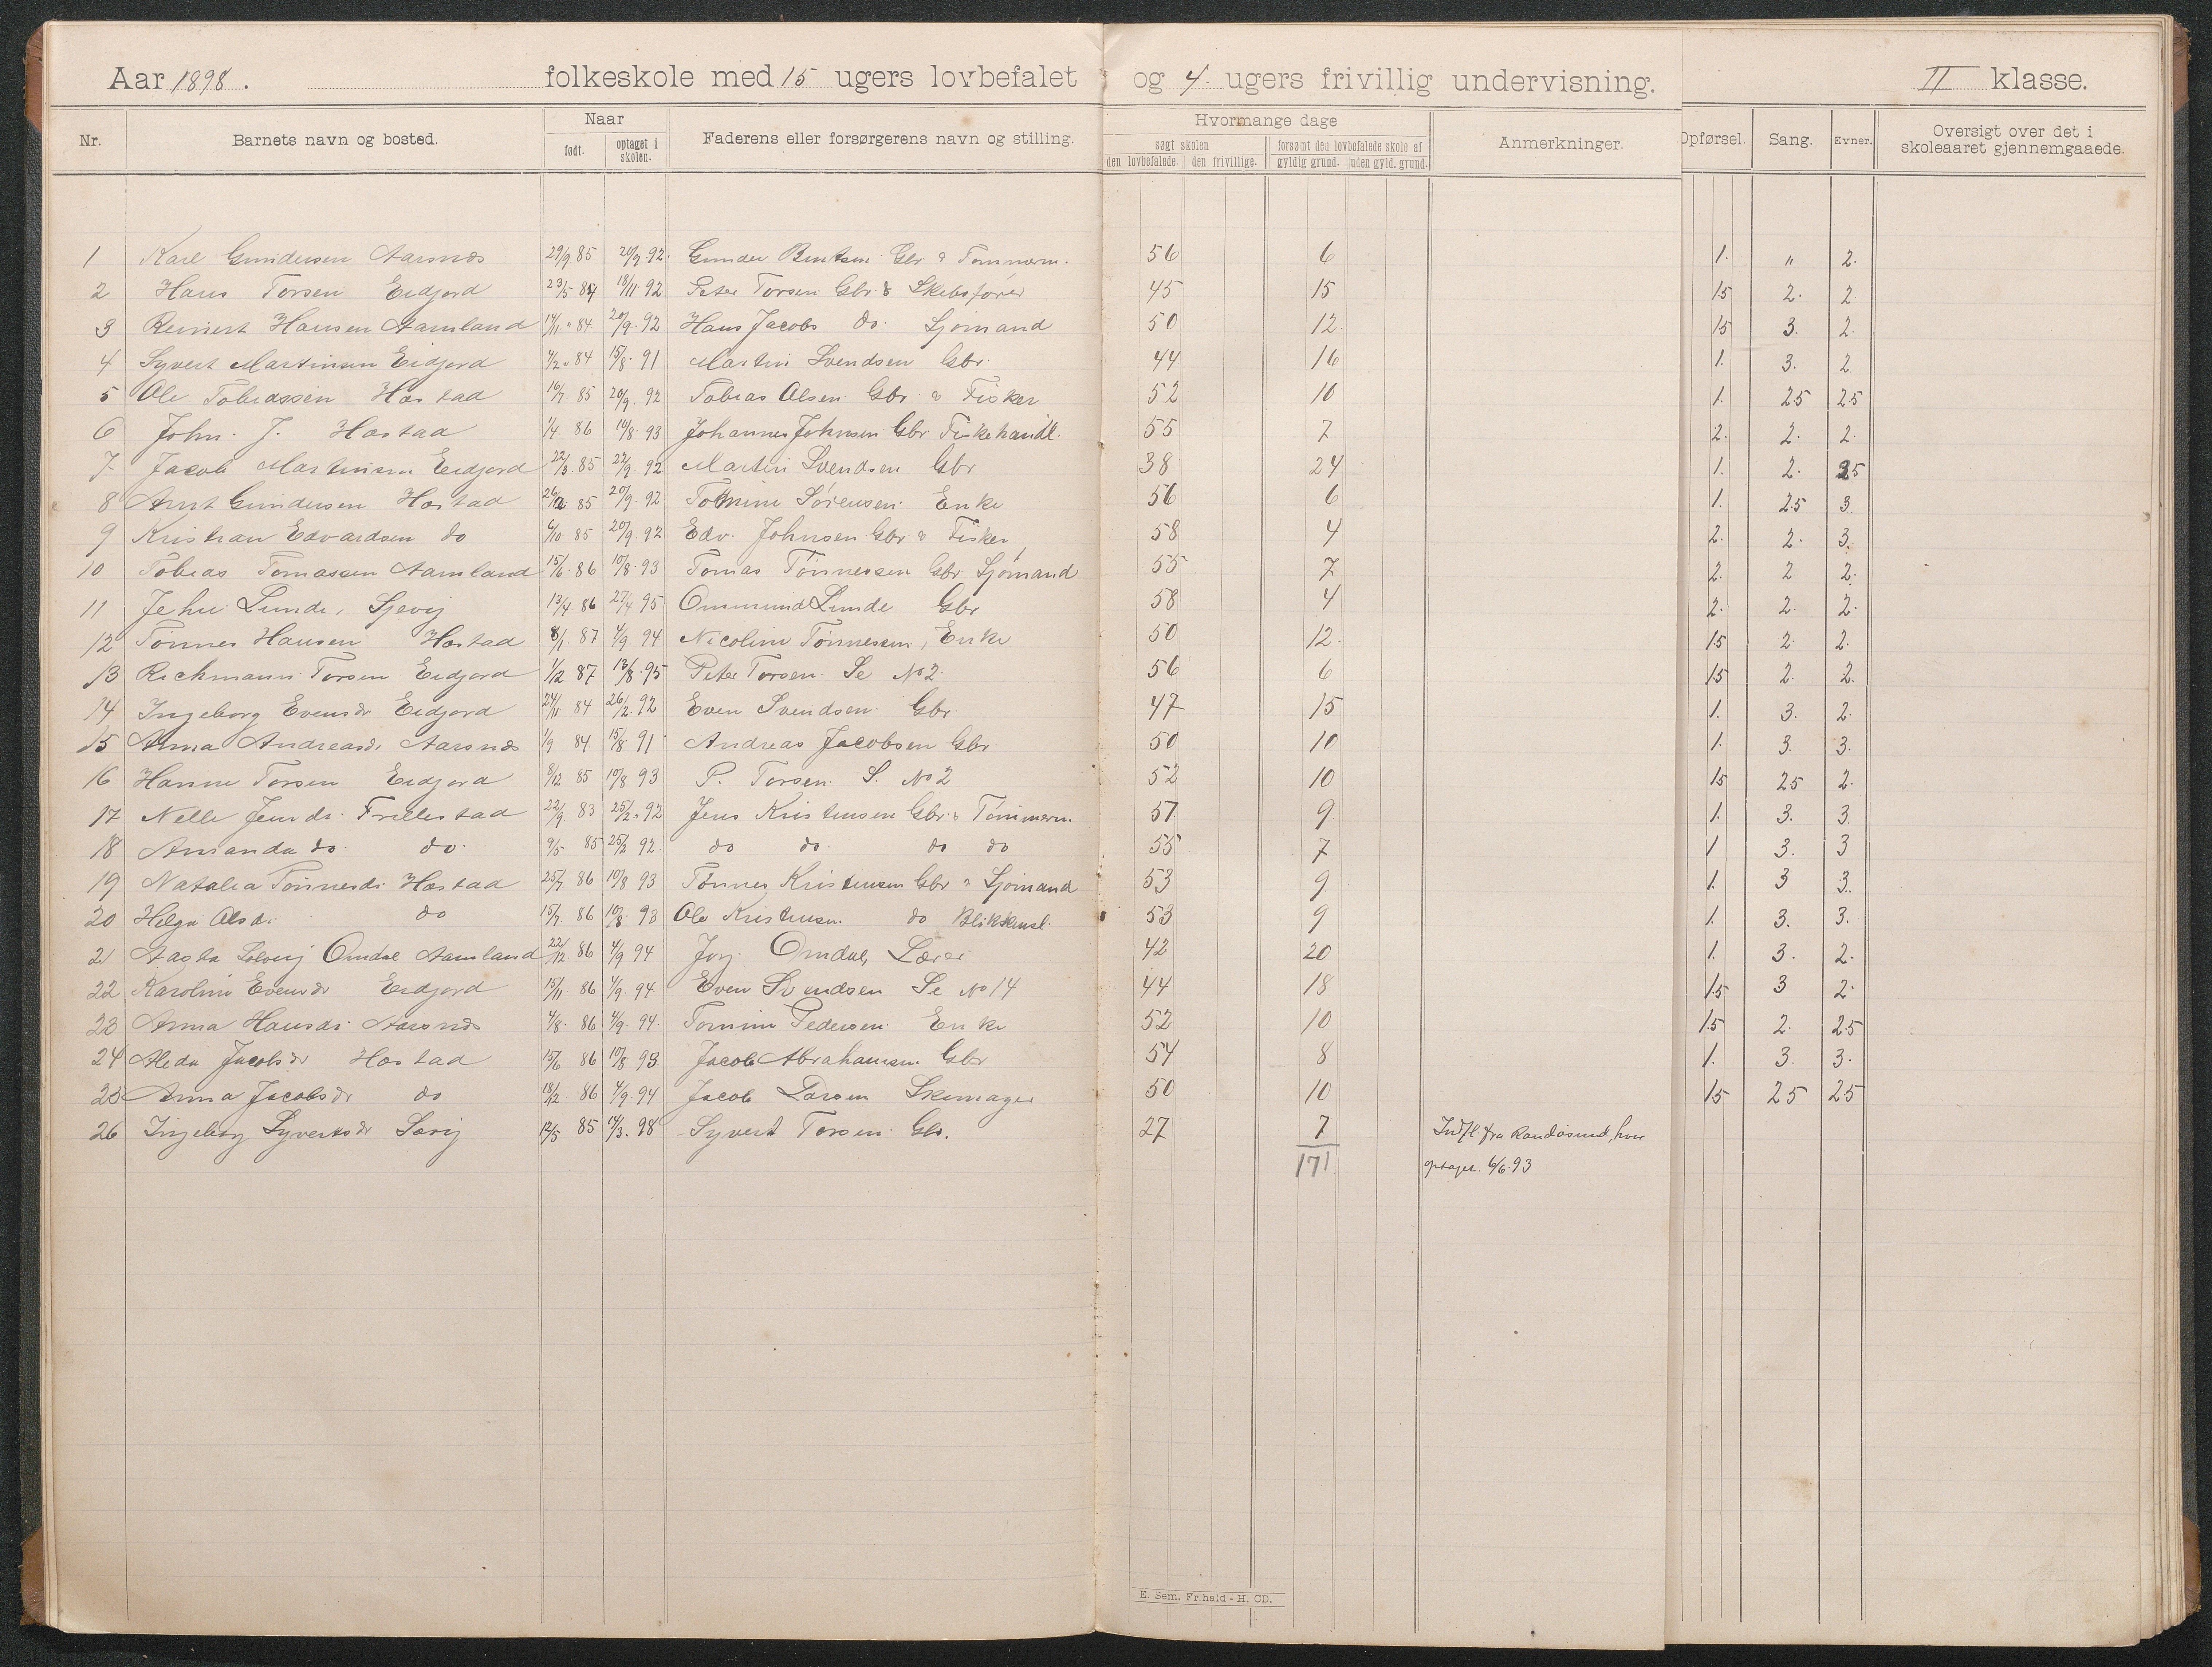 Aar 1898. folkeskole med 15 ugers lovbefalet og 4 ugers frivillig undervisning. II klasse.
Nr. Barnets navn og bosted. Naar født. optaget i skolen. Faderens eller forsørgerens navn og stilling. Hvormange dage søgt skolen den lovbefalede. den frivillige. forsømt den lovbefalede skole af gyldig grund. uden gyld. grund. Anmerkninger. Opførsel. Sang. Evner. Oversigt over det i skoleaaret gjennemgaaede.
1 Karl Gundersen Aarsnes 29/9 85 92. Gunder Bentsen Gbr & Tømmerm. 56 6 1. " 2.
2 Hans Torsen Eidjord 23/5 84 18/11 92 Peter Torsen Gbr & Skibsfører 45 15 15 2. 2
3 Reinert Hansen Aamland 14/11 84 20/9. 92 Hans Jacobs do. Sjømand 50 12 15 3. 2.
4 Syvert Martinsen Eidjord 4/2 84 15/8 91 Martin Svendsen Gbr. 44 16 1. 3. 2
5 Ole Tobiassen Hæstad 16/7. 85 20/9. 92 Tobias Olsen Gbr & Fisker 52 10 1. 25 25
6 John. J. Hæstad 1/4. 86 10/8. 93 Johannes Johnsen Gbr Fiskehandl. 55 7 2. 2. 2.
7 Jacob Martinsen Eidjord 22/3. 85 22/9. 92 Martin Svendsen Gbr 38 24 1. 2. 25
8 Arnt Gundersen Hæstad 85 20/9. 92 Tomine Sørensen Enke 56 6 1. 25 3
9 Kristian Edvardsen do 6/10 85 20/9. 92 Edv. Johnsen Gbr & Fisker 58 4 2. 2. 3.
10 Tobias Tomassen Aamland 15/6. 86 10/8. 93 Tomas Tønnessen Gbr Sjømand 55 7 2. 2 2.
11 Jehu Lunde, Sjevig 13/4. 86 27/4 95 Ommund Lunde Gbr 58 4 2. 2. 2.
12 Tønnes Hansen Hæstad 8/1. 87 4/9. 94 Nicoline Tønnessen, Enke 50 12. 15 2. 2.
13 Richmann Torsen Eidjord 1/12 87 13/8. 95 Peter Torsen. Se No 2. 56 6 15 2. 2.
14 Ingeborg Evensdr Eidjord 24/11 84 26/2. 92 Even Svendsen. Gbr. 47 15 1. 3. 2.
15 Anna Andreasd. Aarsnes 1/9 84 15/8. 91 Andreas Jacobsen Gbr. 50 10 1. 3. 3.
16 Hanne Torsen Eidjord 8/12 85 10/8 93 P. Torsen. S. No 2 52 10 15 25 2.
17 Nelle Jensdr. Frillestad 22/9 83 25/2. 92 Jens Kristensen Gbr & Tømmerm. 51. 9 1. 3. 3.
18 Amanda do. do. 9/5 85 25/2 92. do do. do do 55 7 1 3. 3
19 Natalia Tønnesdr. Hæstad 25/7. 86 10/8 93 Tønnes Kristensen Gbr & Sjømand 53 9 1. 3 3.
20 Helga Olsd. do 15/7. 86 10/8. 93 Ole Kristensen. do Blikkensl. 53 9 1. 3. 3.
21 Aasta Solveig Omdal Aamland 22/12. 86 4/9 94 Jørg. Omdal, Lærer 42 20 1. 3. 2.
22 Karoline Evensdr Eidjord 15/11 86 4/9. 94. Even Svendsen Se No 14 44 18 15 3 2.
23 Anna Hansdr. Aarsnes 4/8. 86 4/9. 94. Tomine Pedersen. Enke 52 10 15 2. 25
24 Aleda Jacobsdr Hæstad 15/6 86 10/8 93. Jacob Abrahamsen. Gbr 54 8 1. 3. 3.
25 Anna Jacobsdr do 18/12. 86 4/9. 94 Jacob Larsen Skomager 50 10 15 25 25
26 Ingeborg Syvertsdr Sævig 12/5 85 14/3. 98 Syvert Torsen Gbr. 27 7 Indfl. fra Randøsund, hvor
171 optaget. 6/6. 93
E. Sem. Fr.hald - H. CD.